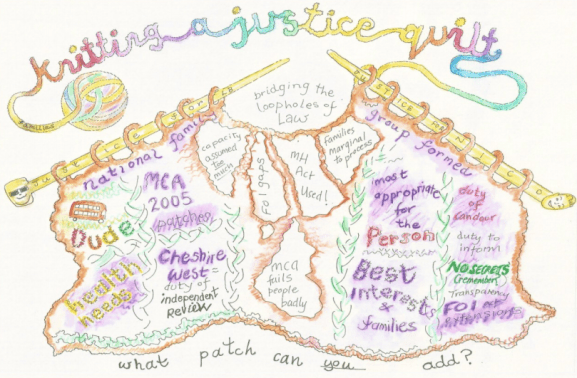 knitting a justice quilt
bridging the
loopholes of
Law
national family
group formed
capacity
assumed
too
much
FoI gaps
MH
Act
Used!
families
marginal
to process
MCA
2005
patches
Dude
health
needs
Cheshire
West =
duty of
independent
Review
MCA
fails
people
badly
most
appropriate
for the
Person
Best
Interests
&
families
duty
of
candour
duty to
inform
NO SECRETS
(remember)
Transparency
FOI
what patch can you add?